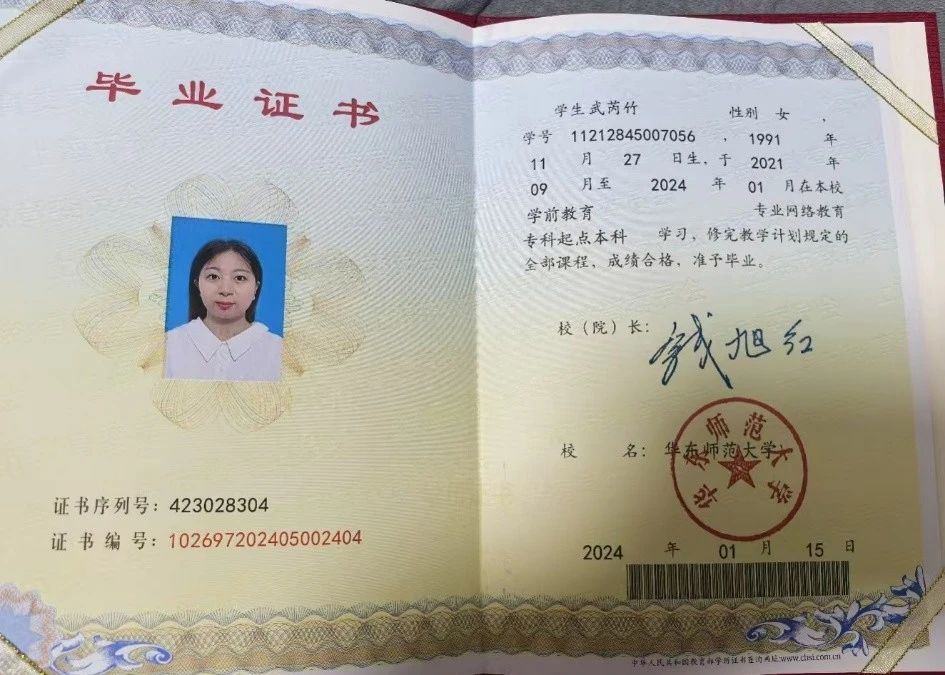 毕业证书
证书序列号：423028304
证书编号：102697202405002404
学生武芮竹 性别 女 ，
学号 11212845007056 ，1991 年
11 月 27 日生，于 2021 年
09 月至 2024 年 01 月在本校
学前教育 专业网络教育
专科起点本科 学习，修完教学计划规定的
全部课程，成绩合格，准予毕业。
校（院）长：
钱旭红
校 名：华东师范大学
华东师范大学
2024 年 01 月 15 日
中华人民共和国教育部学历证书查询网址:www.chsi.com.cn